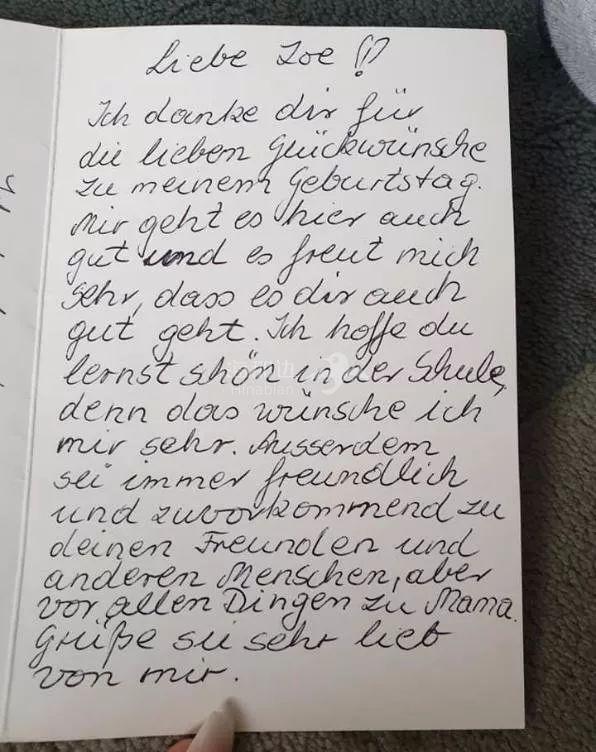 Liebe Zoe !!
Ich danke dir für
die lieben Glückwünsche
zu meinem Geburtstag.
Mir geht es hier auch
gut und es freut mich
sehr, dass es dir auch
gut geht. Ich hoffe du
lernst schon in der Schule,
denn das wünsche ich
mir sehr. Ausserdem
sei immer freundlich
und zuvorkommend zu
deinen Freunden und
anderen Menschen, aber
vor allen Dingen zu Mama.
Grüße sie sehr lieb
von mir.